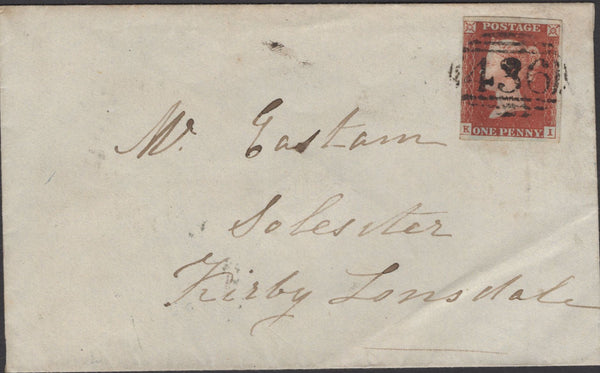 POSTAGE
436
K I
ONE PENNY
Mr. Eastam
Solesiter
Kirby Lonsdale